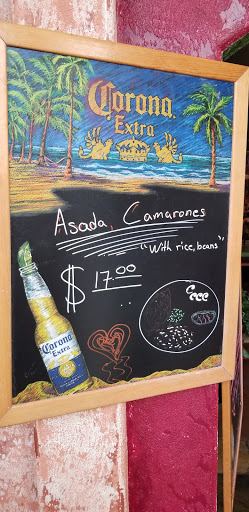 Corona
Extra
Asada, Camarones
"With rice, beans"
$ 17.00
Corona
Extra